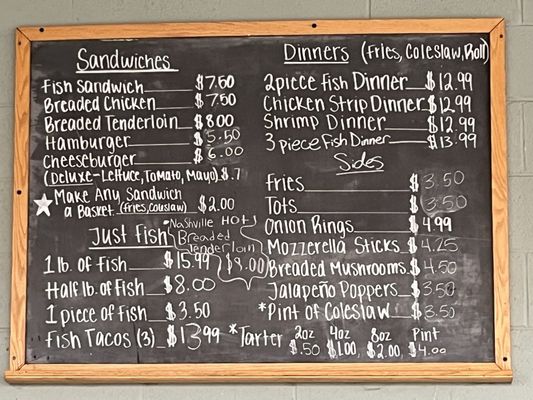 Sandwiches
Fish Sandwich $7.50
Breaded Chicken $7.50
Breaded Tenderloin $8.00
Hamburger $5.50
Cheeseburger $6.00
(Deluxe-Lettuce, Tomato, Mayo) $.7
Make Any Sandwich
a Basket (Fries, Coleslaw) $2.00
Just Fish
Nashville HOT
Breaded
Tenderloin
$9.00
1 lb. of Fish $15.99
Half lb. of Fish $8.00
1 piece of Fish $3.50
Fish Tacos (3) $13.99
Dinners (Fries, Coleslaw, Roll)
2piece Fish Dinner $12.99
Chicken Strip Dinner $12.99
Shrimp Dinner $12.99
3 piece Fish Dinner $13.99
Sides
Fries $3.50
Tots $3.50
Onion Rings $4.99
Mozzerella Sticks $4.25
Breaded Mushrooms $4.50
Jalapeño Poppers $3.50
*Pint of Coleslaw $3.50
*Tarter 2oz 4oz 8oz Pint
$.50 $1.00 $2.00 $4.00